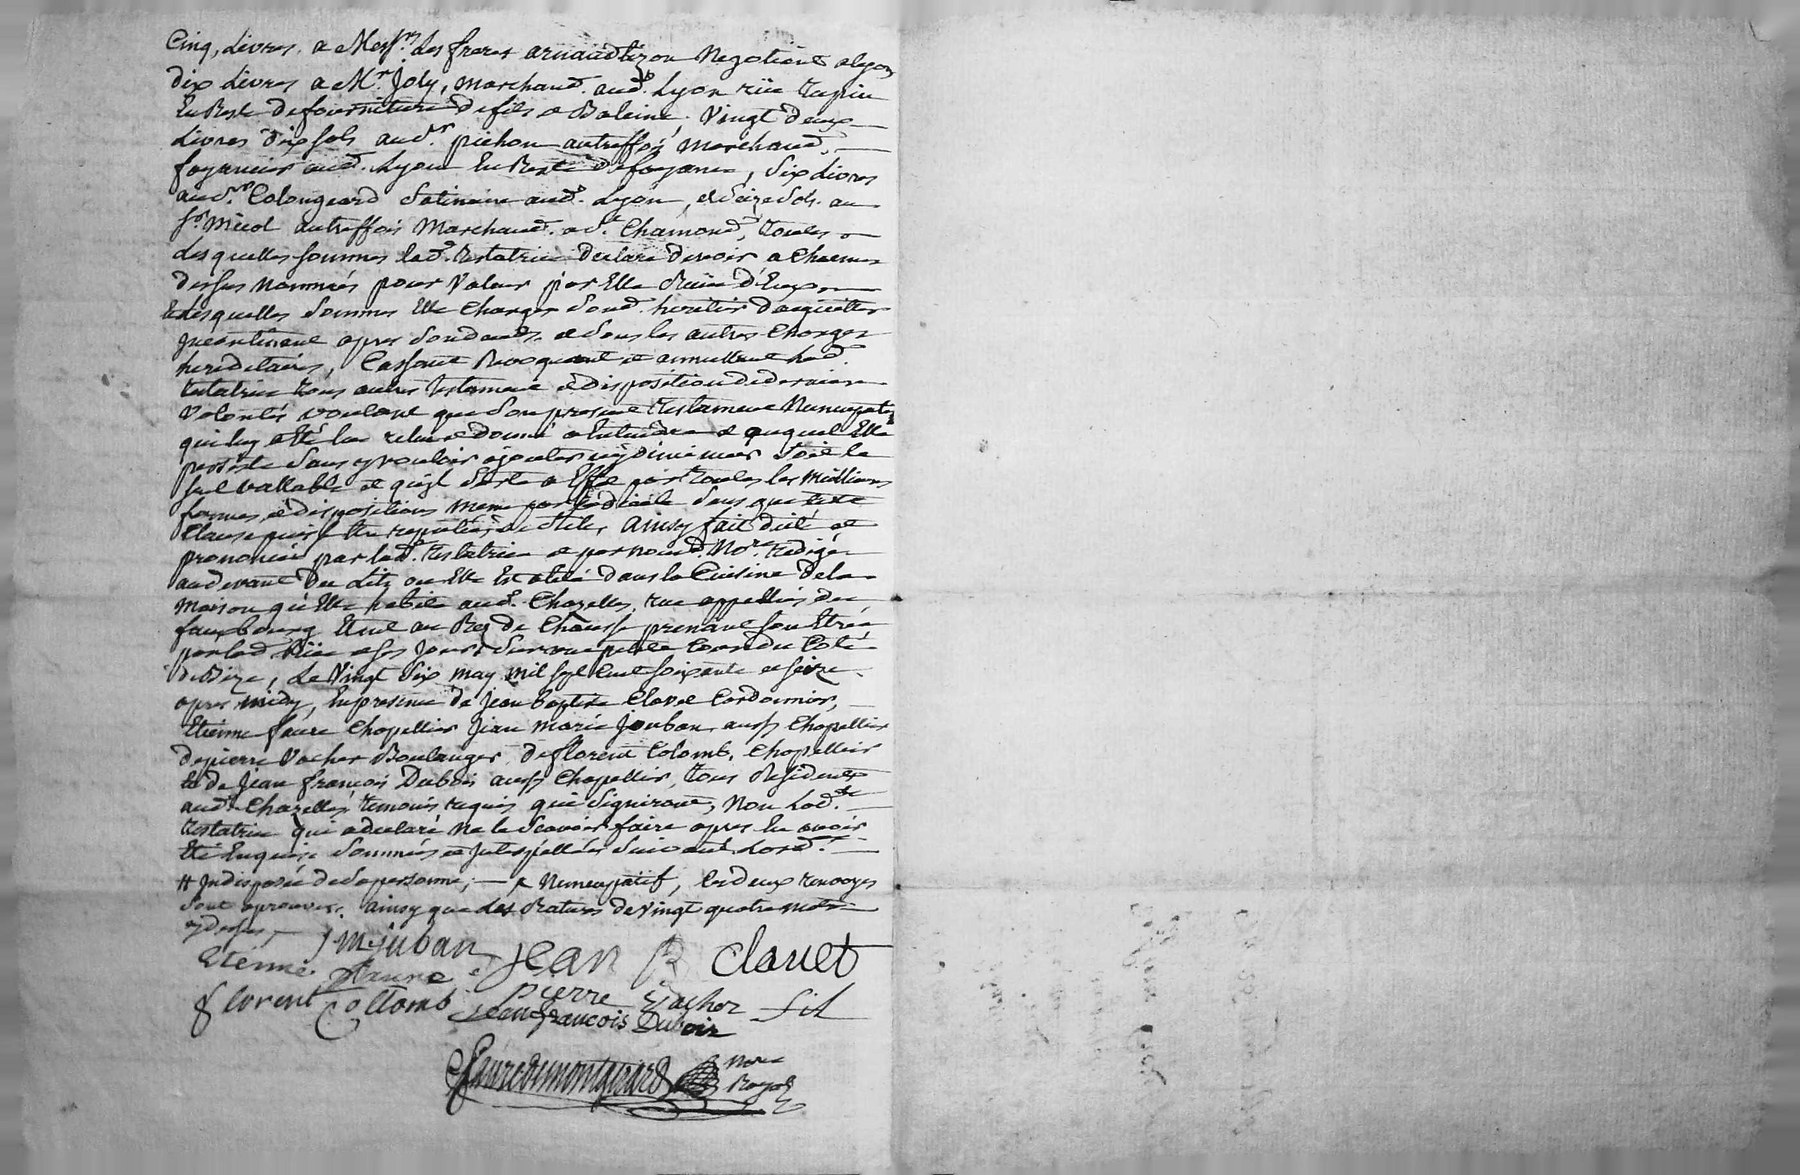 Cinq, Livres, a Mess.rs les freres arnaudtizon Negotient a Lyon
dix Livres a M.r Joly, marchand. aud.t Lyon rüe tupin
En Reste de fourniture de fils et Baleine, Vingt deux
Livres dix sols aud.sr pichon autreffois marchand,
fayancier aud. Lyon En Reste de fayance, Six Livres
aud.sr Colongeard Satinaire aud.t Lyon, et Seize Sols au
s.r Micol autreffois Marchand. a S.t Chamond, toutes
Lesquelles sommes lad.e testatrice declare devoir a Chacuns
dessus nommés pour Valeur par Elle Reüe d'Eux
Lesquelles Sommes Elle Charges Sond. heritier d'acquitter
Incontinant apres Son decès, et Sous les autres Charges
hereditaires, Cassant Revoquant et annullant lad.e
testatrice tous autres testament et disposition de derniere
Volontés voulant que Son present testament Nuncupatif
qui luy a Eté lu relu et donné a Entendre et auquel Elle
persiste Sans y vouloir ajouter ny diminuer Soit le
seul vallable et qu'il Sorte a Effet par toutes les meilleures
formes, et dispositions meme par codicile Sans que cette
Clause puisse Etre reputée de Stile, ainsy fait dicté et
prononcé par lad.e testatrice et par nous d. No.re redigé
au devant du Lit, ou Elle Est alité dans la Cuisine de la
maison qu'Elle habite aud.t Chazelles, rue appellée du
fauxbourg Etant au Rez de Chaussé prenant son Entrée
par lad. Rüe et Ses Jours Sur une petite Cour du Coté
de Bize, Le Vingt Six may mil sept Cent soixante et seize
apres midy, En presence de Jean Baptiste Clavel Cordonnier,
Etienne faure Chapellier Jean Marie Jouban, aussy Chapellier
de pierre Vacher Boulanger, de florent Colomb, Chapellier
Et de Jean françois Dubois aussy Chapellier, tous Residents
aud.t Chazelles temoins requis qui Signeront, Non lad.te
testatrice qui a declaré ne le Scavoir faire apres En avoir
Eté Enquise Sommée et Interpellée Suivant Lord.ce
# Indisposée de Sa personne; — x Nuncupatif, les deux renvoyes
Sont aprouves, ainsy que des Ratures de vingt quatre mots
cy dessus,
J M Juban Jean B Clauet
Etienne faure
florent Collomb pierre Vacher fil
Jean francois Duboir
faure de montgirard No.re Royal